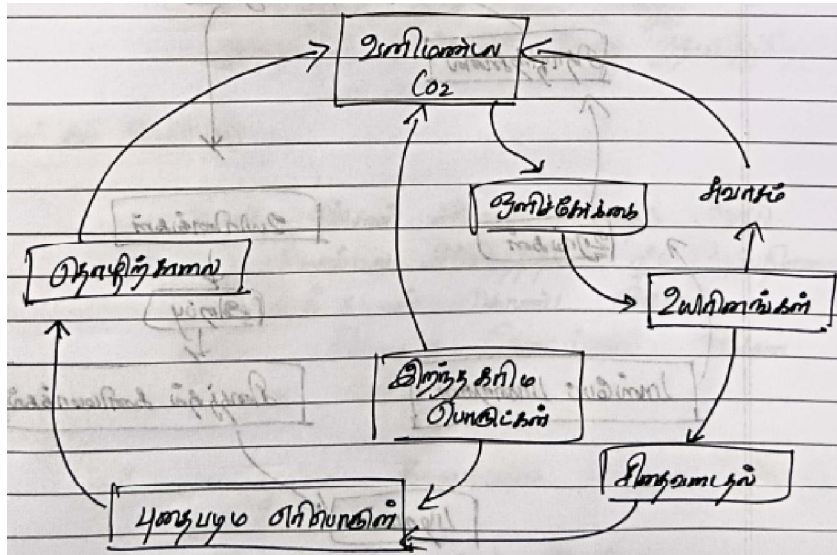 வளிமண்டல
CO2
ஒளிச்சேர்க்கை
சுவாசம்
தொழிற்சாலை
உயிரினங்கள்
இறந்த கரிம
பொருட்கள்
சிதைவடைதல்
புதைபடிம எரிபொருள்